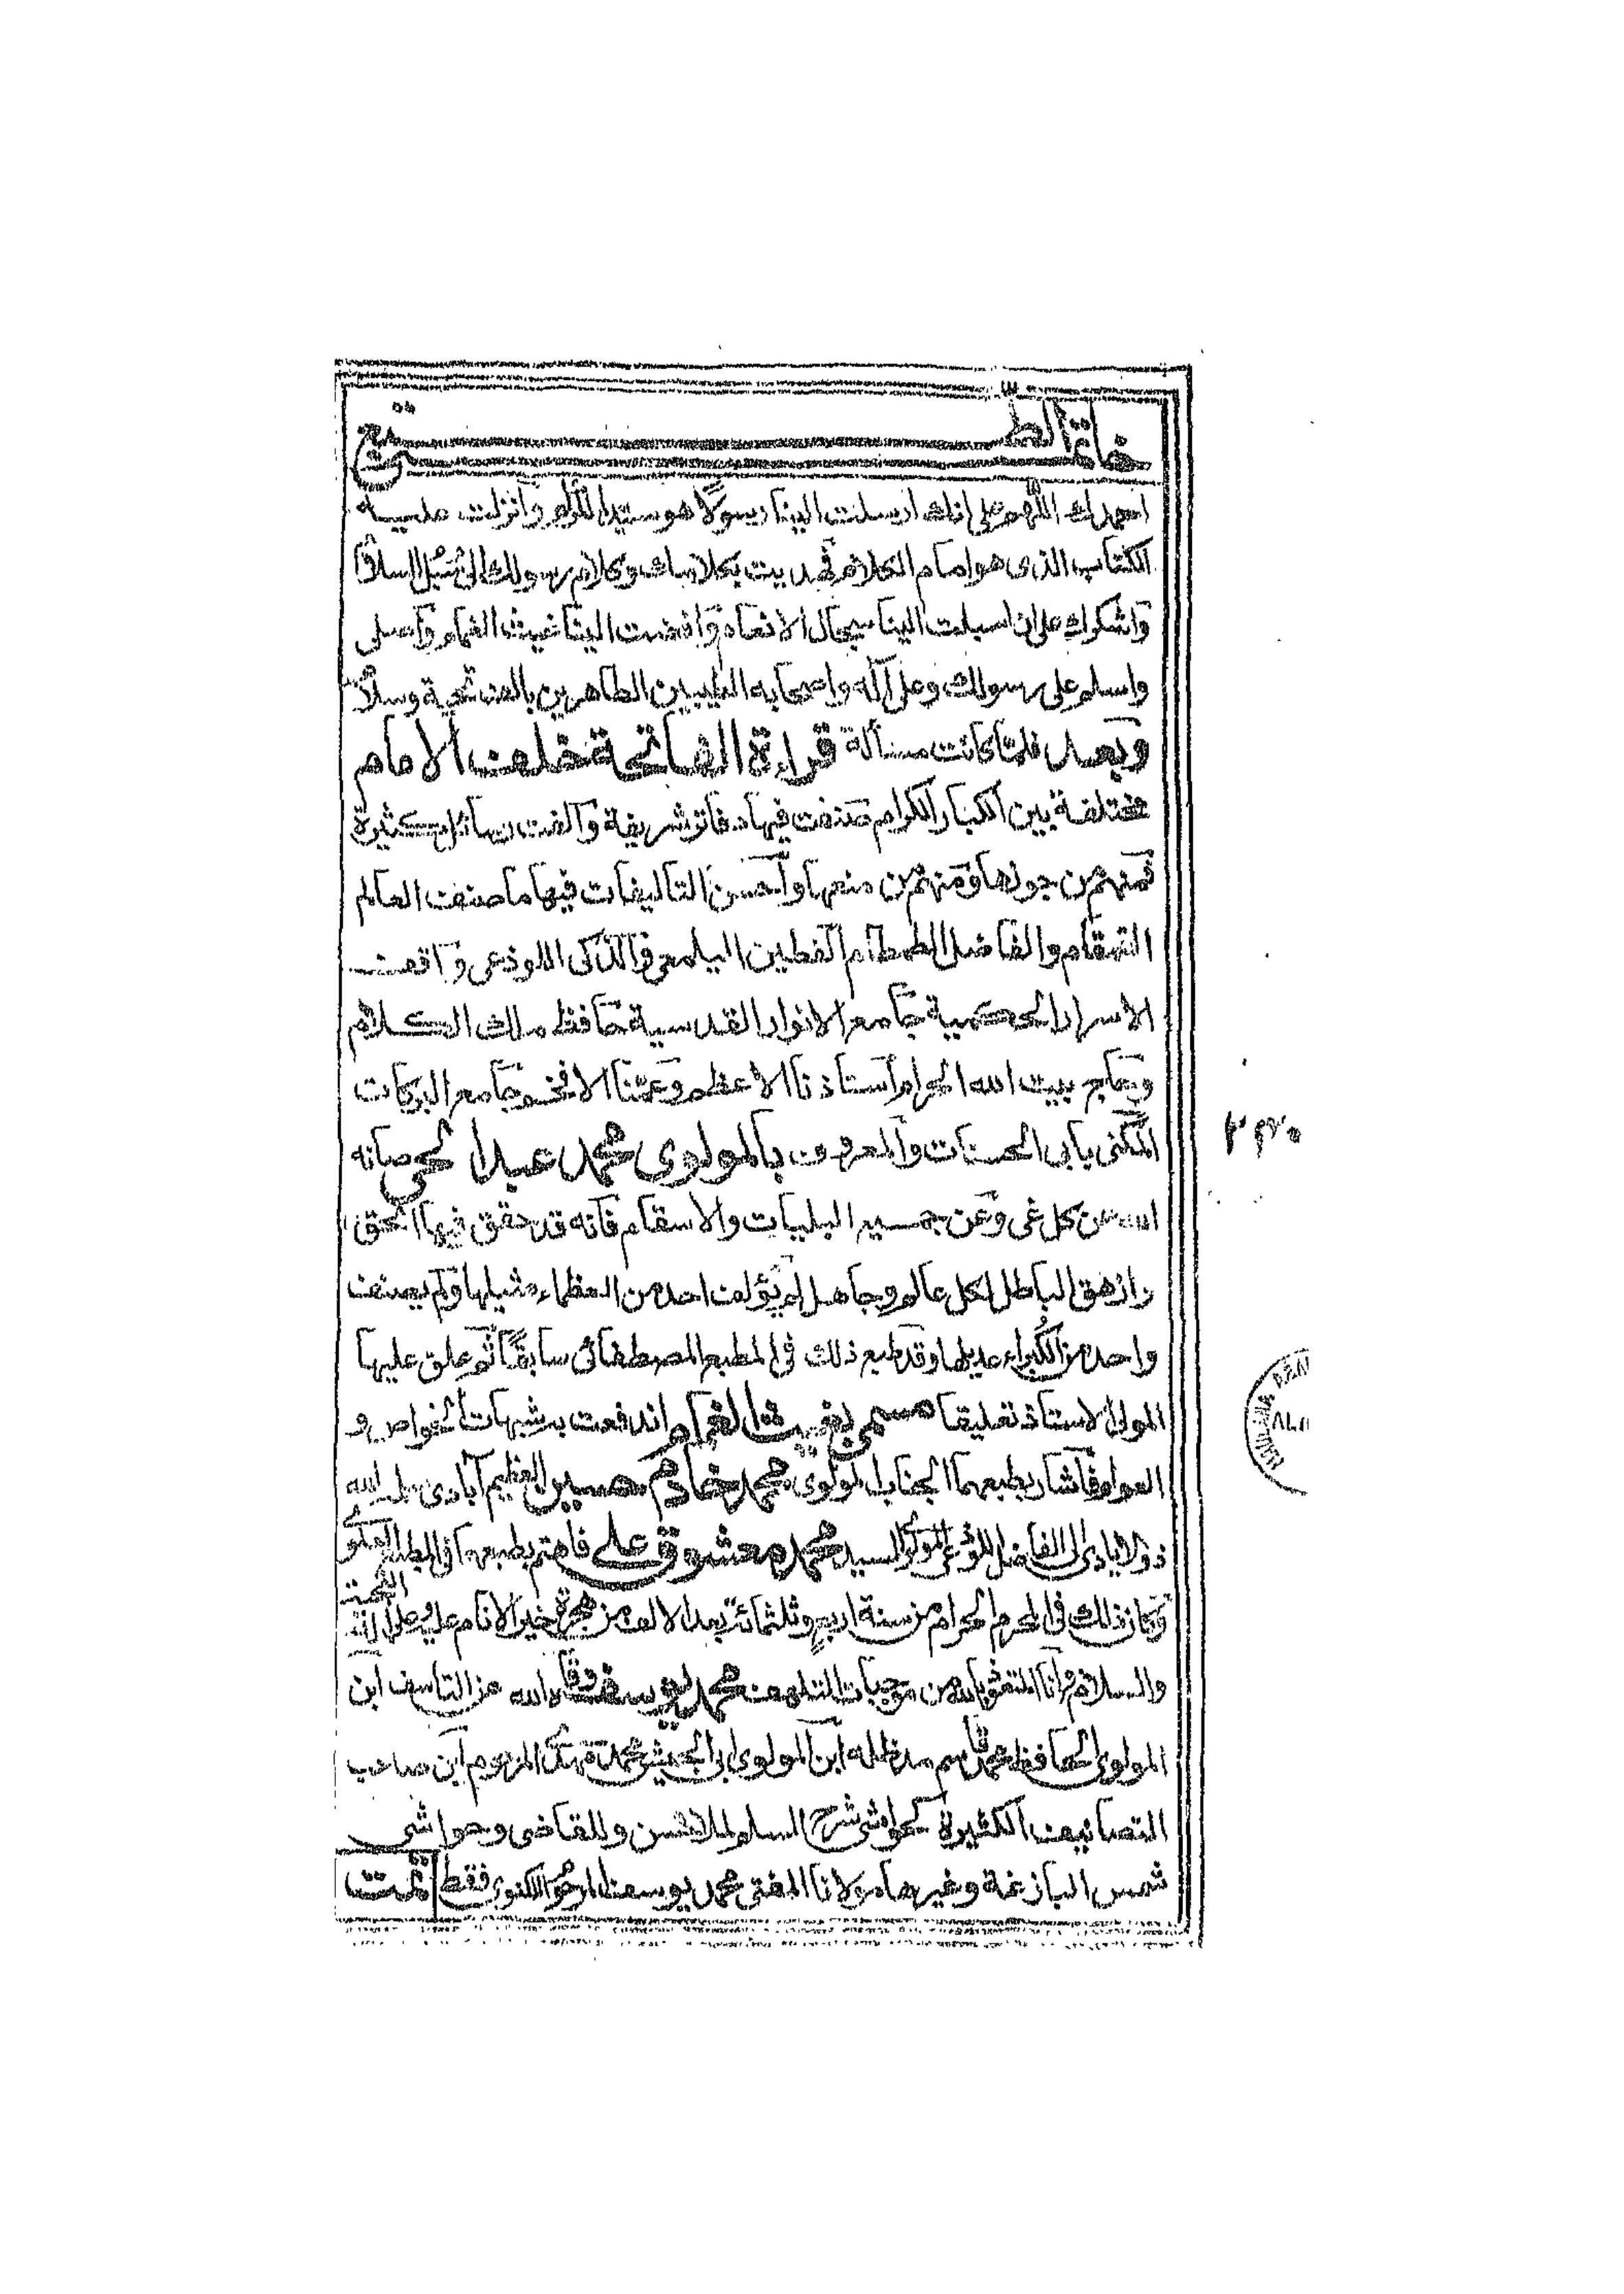 خاتمة الطبع
احمدك اللهم على انك ارسلت الينا رسولا هو سيد الانام وانزلت عليه
الكتاب الذى هو امام الكلام فهديت بكلامك وكلام رسولك الى سبل السلام
واشكرك على ان اسبلت الينا سجال الانعام وافضت الينا غيث الغمام واصلى
واسلم على رسولك وعلى آله واصحابه الطيبين الطاهرين بالف تحية وسلام
وبعد فلما كانت مسألة قراءة الفاتحة خلف الامام
مختلفة بين الكبار الكرام صنفت فيها دفاتر شريفة والفت رسائل كثيرة
فمنهم من جوزها ومنهم من منعها واحسن التاليفات فيها ما صنف العالم
القمقام والفاضل الطمطام الفطين اليلمعى والذكى اللوذعى واقف
الاسرار الحكمية جامع الانوار القدسية حافظ ملك الكلام
وحاج بيت الله الحرام استاذنا الاعظم وعمنا الافخم جامع البركات
المكنى بابى الحسنات والمعروف بالمولوى محمد عبد الحى صانه
الله عن كل غى وعن جميع البليات والاسقام فانه قد حقق فيها الحق
وازهق الباطل لكل عالم وجاهل لم يؤلف احد من العظماء مثيلها ولم يصنف
واحد من الكبراء عديلها وقد طبع ذلك فى المطبع المصطفائى سابقا ثم علق عليها
المولى الاستاذ تعليقا مسمى بغيث الغمام اندفعت به شبهات الخواص و
العوام فاشار بطبعهما الجناب المولوى محمد خادم حسين العظيم آبادى سلمه الله
ذو الايادى الى الفاضل اللوذعى المولوى السيد محمد معشوق على فاهتم بطبعهما فى المطبع العلوى
وكان ذلك فى المحرم الحرام من سنة اربع وثلثمائة بعد الالف من هجرة خير الانام عليه وعلى آله التحية
والسلام وانا المتعوذ بالله من موجبات التلهف محمد يوسف وقاه الله عن التاسف ابن
المولوى الحافظ محمد قاسم مد ظله ابن المولوى ابى الجيش محمد مهدى المرحوم ابن صاحب
التصانيف الكثيرة كحواشى شرح السلم لملا حسن وللقاضى وحواشى
شمس البازغة وغيرها مولانا المفتى محمد يوسف المرحوم اللكنوى فقط تمت